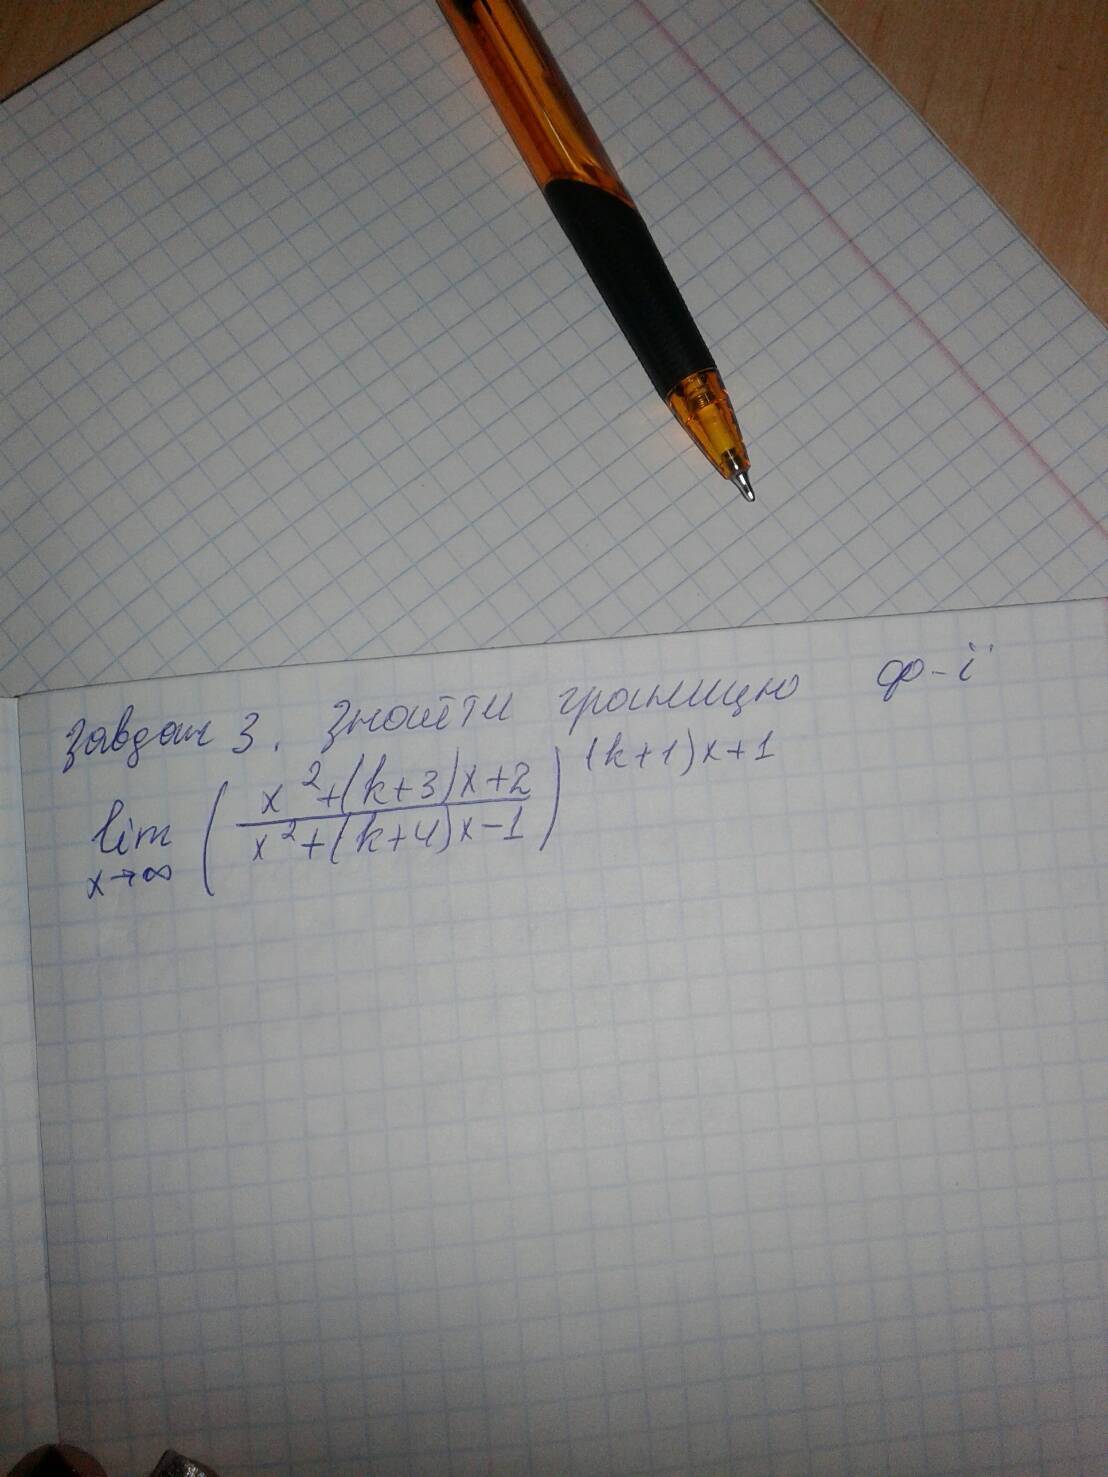 Завдан 3. Знайти границю ф-ї
lim x→∞ ( x²+(k+3)x+2 / x²+(k+4)x-1 ) (k+1)x+1